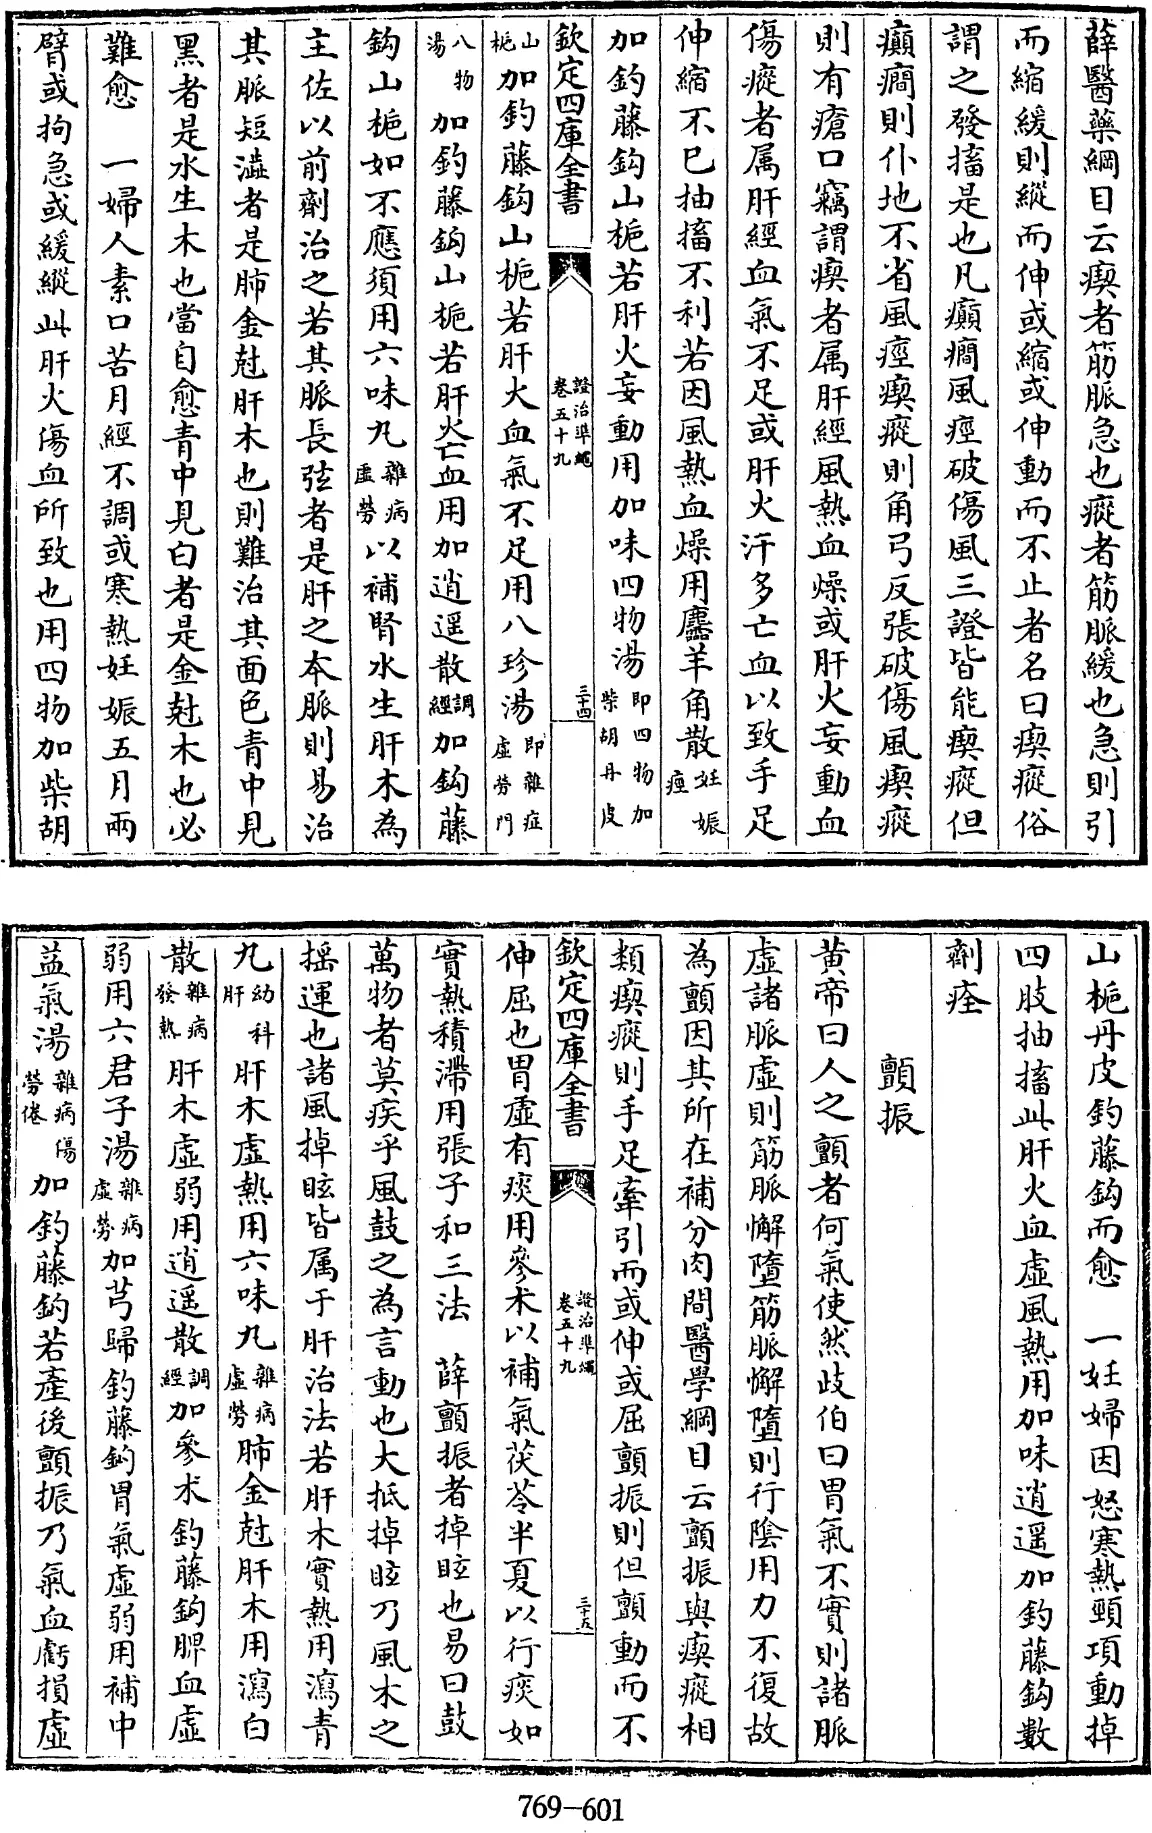 薛醫藥綱目云瘈者筋脈急也瘲者筋脈緩也急則引
而縮緩則縱而伸或縮或伸動而不止者名曰瘈瘲俗
謂之發搐是也凡癲癇風痙破傷風三證皆能瘈瘲但
癲癇則仆地不省風痙瘈瘲則角弓反張破傷風瘈瘲
則有瘡口竊謂瘈者属肝經風熱血燥或肝火妄動血
傷瘲者属肝經血氣不足或肝火汗多亡血以致手足
伸縮不已抽搐不利若因風熱血燥用麢羊角散妊娠痙
加釣藤鈎山梔若肝火妄動用加味四物湯即四物加柴胡丹皮
欽定四庫全書
證治準繩
卷五十九
三十四
山梔加釣藤鈎山梔若肝火血氣不足用八珍湯即雜症虛勞門
八物湯加釣藤鈎山梔若肝火亡血用加逍遥散調經加鈎藤
鈎山梔如不應須用六味丸雜病虛勞以補腎水生肝木為
主佐以前劑治之若其脈長弦者是肝之本脈則易治
其脈短澁者是肺金尅肝木也則難治其面色青中見
黑者是水生木也當自愈青中見白者是金尅木也必
難愈　一婦人素口苦月經不調或寒熱妊娠五月兩
臂或拘急或緩縱此肝火傷血所致也用四物加柴胡
山梔丹皮釣藤鈎而愈　一妊婦因怒寒熱頸項動掉
四肢抽搐此肝火血虛風熱用加味逍遥加釣藤鈎數
劑痊
顫振
黄帝曰人之顫者何氣使然歧伯曰胃氣不實則諸脈
虛諸脈虛則筋脈懈墮筋脈懈墮則行陰用力不復故
為顫因其所在補分肉間醫學綱目云顫振與瘈瘲相
類瘈瘲則手足牽引而或伸或屈顫振則但顫動而不
欽定四庫全書
證治準繩
卷五十九
三十五
伸屈也胃虛有痰用參术以補氣茯苓半夏以行痰如
實熱積滯用張子和三法　薛顫振者掉眩也易曰鼓
萬物者莫疾乎風鼓之為言動也大抵掉眩乃風木之
摇運也諸風掉眩皆属于肝治法若肝木實熱用瀉青
丸幼科肝肝木虛熱用六味丸雜病虛勞肺金尅肝木用瀉白
散雜病發熱肝木虛弱用逍遥散調經加參术釣藤鈎脾血虛
弱用六君子湯雜病虛勞加芎歸釣藤鈎胃氣虛弱用補中
益氣湯雜病傷勞倦加釣藤鈎若產後顫振乃氣血虧損虛
769–601